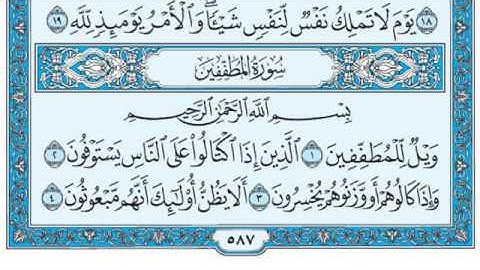 ١٨ يَوْمَ لَا تَمْلِكُ نَفْسٌ لِّنَفْسٍ شَيْـًٔا ۖ وَٱلْأَمْرُ يَوْمَئِذٍ لِّلَّهِ ١٩
سُورَةُ المُطَفِّفِينَ
بِسْمِ ٱللَّهِ ٱلرَّحْمَٰنِ ٱلرَّحِيمِ
وَيْلٌ لِّلْمُطَفِّفِينَ ١ ٱلَّذِينَ إِذَا ٱكْتَالُوا۟ عَلَى ٱلنَّاسِ يَسْتَوْفُونَ ٢
وَإِذَا كَالُوهُمْ أَو وَّزَنُوهُمْ يُخْسِرُونَ ٣ أَلَا يَظُنُّ أُو۟لَٰٓئِكَ أَنَّهُم مَّبْعُوثُونَ ٤
٥٨٧